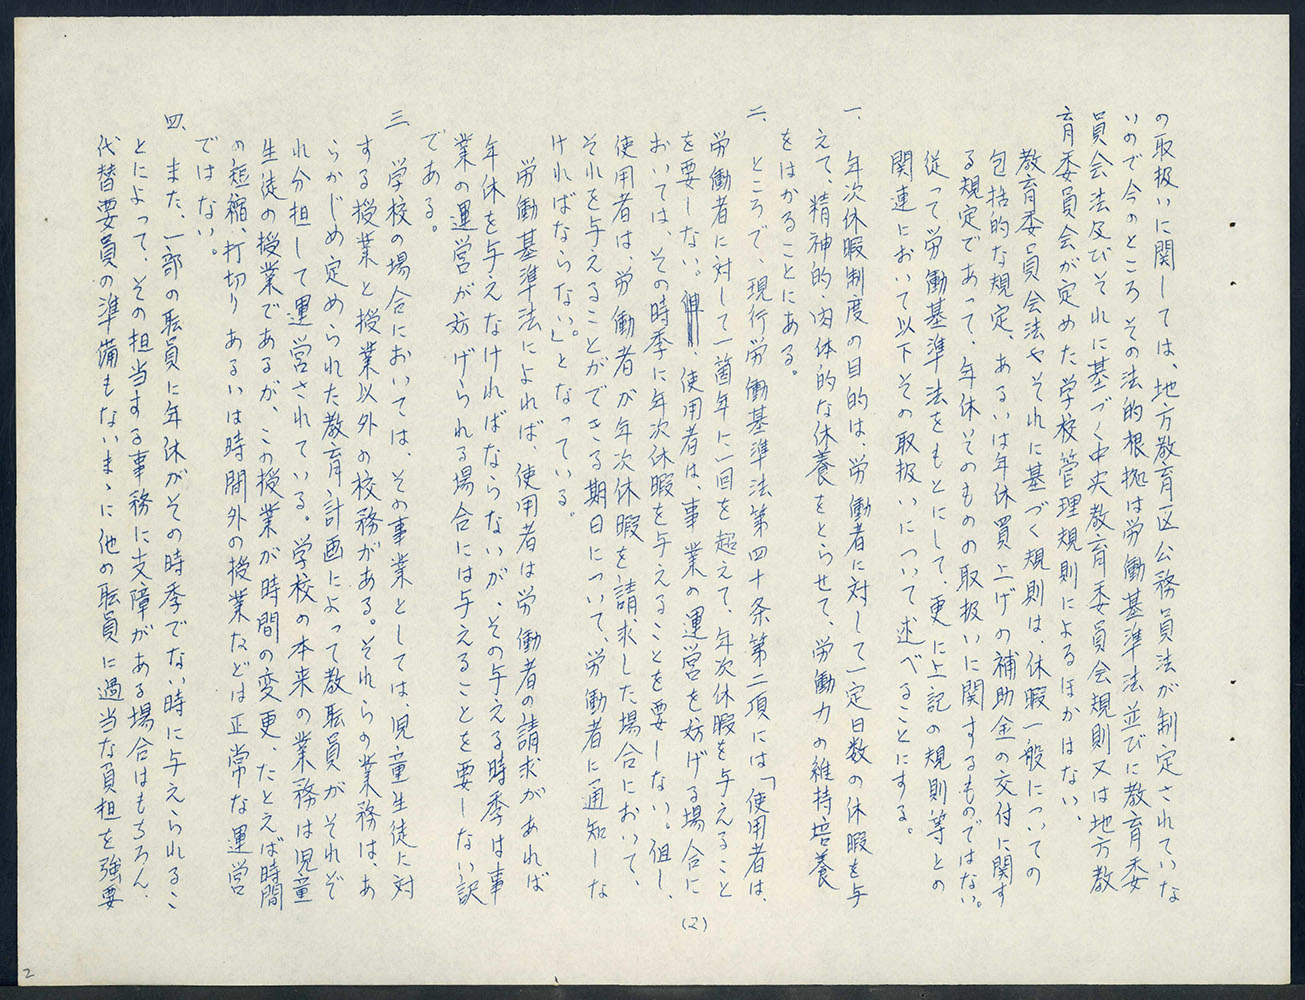 の取扱いに関しては、地方教育区公務員法が制定されていな
いので今のところその法的根拠は労働基準法並びに教育委
員会法及びそれに基づく中央教育委員会規則又は地方教
育委員会が定めた学校管理規則によるほかはない、
教育委員会法やそれに基づく規則は、休暇一般についての
包括的な規定、あるいは年休買上げの補助金の交付に関す
る規定であって、年休そのものの取扱いに関するものではない。
従って労働基準法をもとにして、更に上記の規則等との
関連において以下その取扱いについて述べることにする。
一、年次休暇制度の目的は、労働者に対して一定日数の休暇を与
えて、精神的、肉体的な休養をとらせて、労働力の維持培養
をはかることにある。
二、ところで、現行労働基準法第四十条第二項には「使用者は、
労働者に対して一箇年に一回を超えて、年次休暇を与えること
を要しない。、使用者は、事業の運営を妨げる場合に
おいては、その時季に年次休暇を与えることを要しない。但し、
使用者は、労働者が年次休暇を請求した場合において、
それを与えることができる期日について、労働者に通知しな
ければならない。」となっている。
労働基準法によれば、使用者は労働者の請求があれば
年休を与えなければならないが、その与える時季は事
業の運営が妨げられる場合には与えることを要しない訳
である。
三、学校の場合においては、その事業としては、児童生徒に対
する授業と授業以外の校務がある。それらの業務は、あ
らかじめ定められた教育計画によって教職員がそれぞ
れ分担して運営されている。学校の本来の業務は児童
生徒の授業であるが、この授業が時間の変更、たとえば時間
の短縮、打切りあるいは時間外の授業などは正常な運営
ではない。
四、また、一部の職員に年休がその時季でない時に与えられるこ
とによって、その担当する事務に支障がある場合はもちろん、
代替要員の準備もないまゝに他の職員に過当な負担を強要
(2)
2